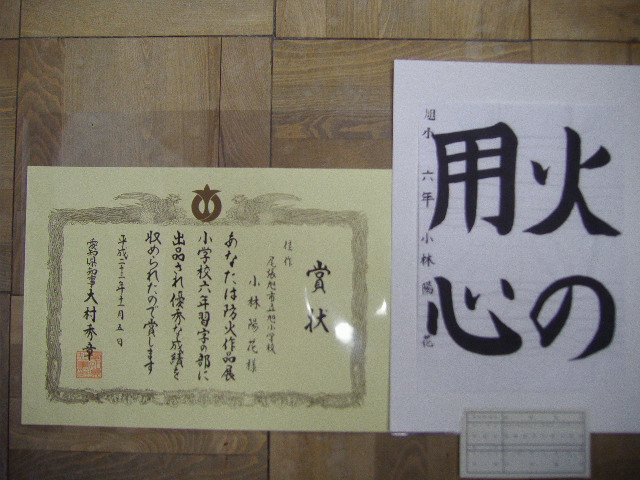 火の
用心
旭小 六年 小林陽花
賞状
佳作
尾張旭市立旭小学校
小林陽花様
あなたは防火作品展
小学校六年習字の部に
出品され優秀な成績を
収められたので賞します
平成二十三年十一月五日
愛知県知事大村秀章